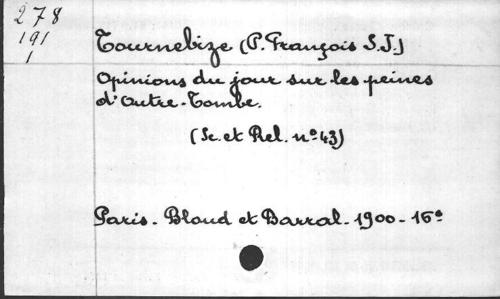 278
191
1
Tournebize (P. François S.J.)
Opinions du jour sur les peines
d'Outre-Tombe.
(Sc. et Rel. nº 43)
Paris - Bloud et Barral - 1900 - 16º